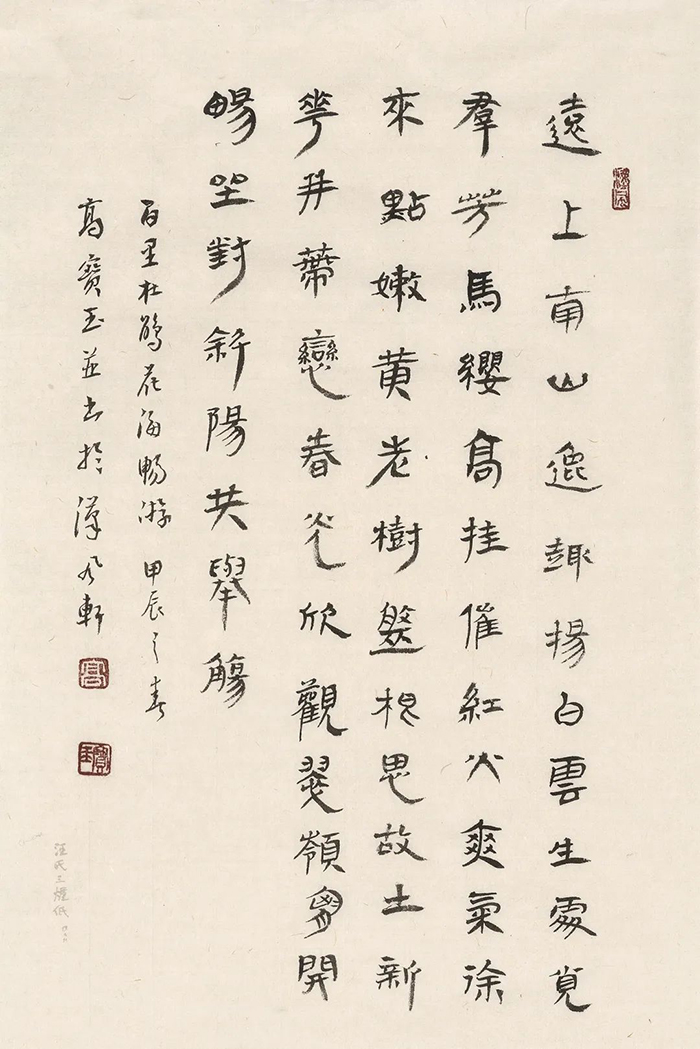 遠上南山逸趣揚白雲生處覓
羣芳馬纓高挂催紅火爽氣徐
來點嫩黄老樹盤根思故土新
花并蒂戀春光欣觀翠嶺胸開
暢坐對斜陽共舉觴
百里杜鵑花海暢游 甲辰之春
高寶玉並書於漢風軒